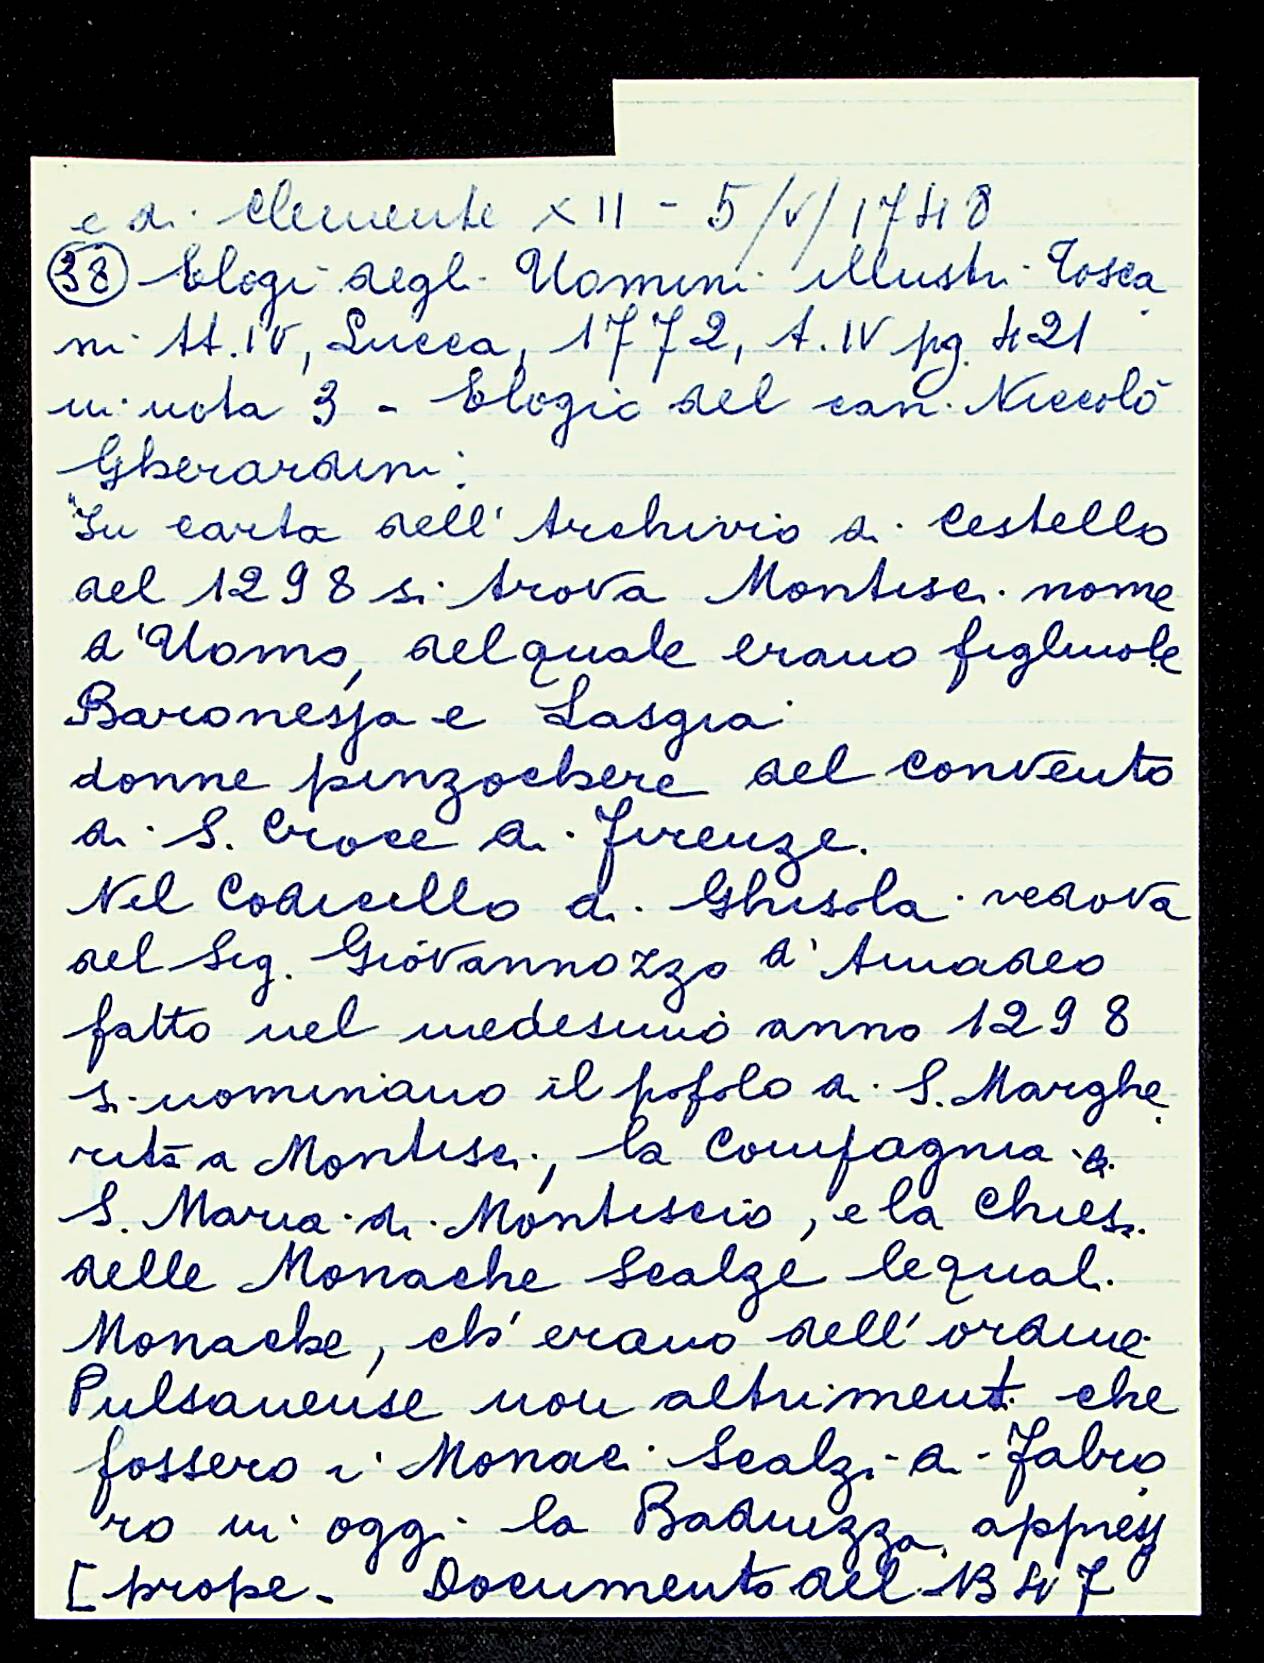 e di Clemente XII - 5/V/1748
(38) Elogi degli Uomini illustri Tosca
ni tt. IV, Lucca, 1772, t. IV pg. 421
in nota 3 - Elogio del can. Niccolò
Gherardini:
"In carta dell'Archivio di Cestello
del 1298 si trova Montisci nome
d'Uomo, del quale erano figliuole
Baronessa e Lasgia
donne pinzochere del convento
di S. Croce di Firenze.
Nel Codicillo di Ghisola vedova
del Sig. Giovannozzo d'Amadeo
fatto nel medesimo anno 1298
si nominano il popolo di S. Marghe
rita a Montisci, la Compagnia di
S. Maria di Montiscio, e la Chiesa
delle Monache Scalze le quali
Monache, ch'erano dell'ordine
Pulsanense non altrimenti che
fossero i Monaci Scalzi di Fabro
ro in oggi la Badiuzza appresso
[prope - Documento del 1347